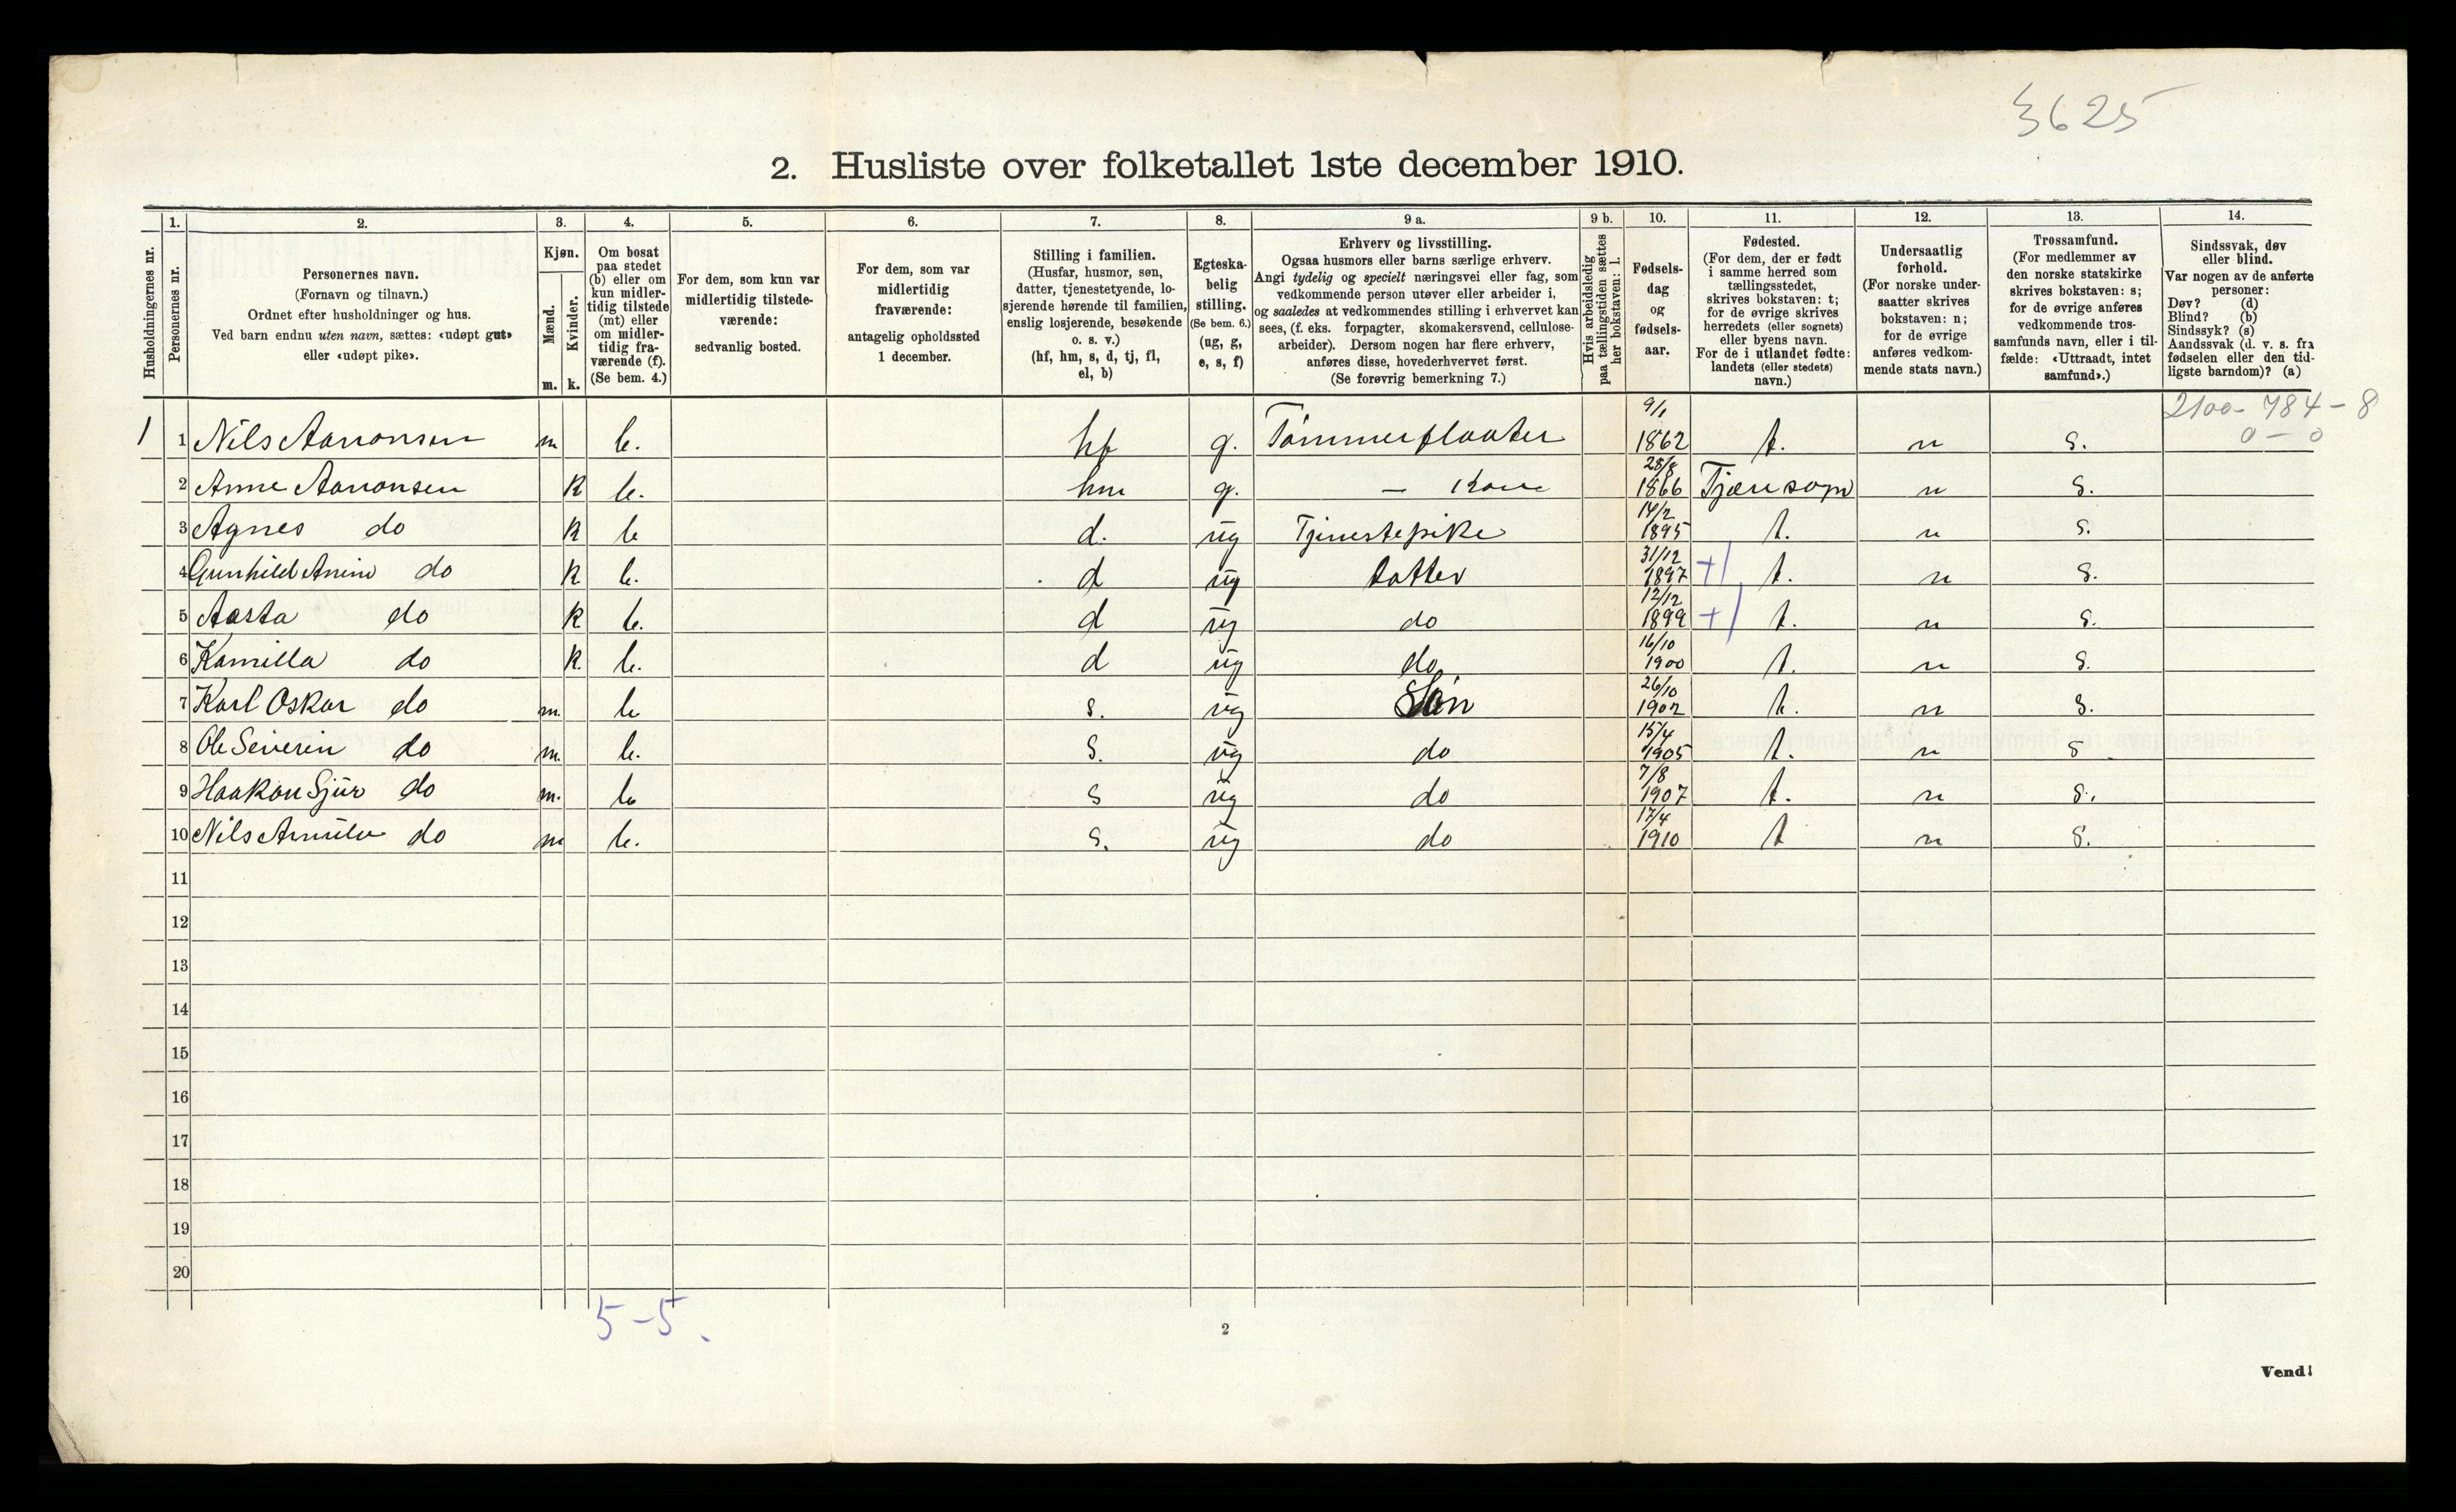 3625
2. Husliste over folketallet 1ste december 1910.
Husholdningernes nr.
1.
Personernes nr.
2.
Personernes navn.
(Fornavn og tilnavn.)
Ordnet efter husholdninger og hus.
Ved barn endnu uten navn, sættes: «udøpt gut»
eller «udøpt pike».
3.
Kjøn.
Mænd.
Kvinder.
m. k.
4.
Om bosat
paa stedet
(b) eller om
kun midler-
tidig tilstede
(mt) eller
om midler-
tidig fra-
værende (f).
(Se bem. 4.)
5.
For dem, som kun var
midlertidig tilstede-
værende:
sedvanlig bosted.
6.
For dem, som var
midlertidig
fraværende:
antagelig opholdssted
1 december.
7.
Stilling i familien.
(Husfar, husmor, søn,
datter, tjenestetyende, lo-
sjerende hørende til familien,
enslig losjerende, besøkende
o. s. v.)
(hf, hm, s, d, tj, fl,
el, b)
8.
Egteska-
belig
stilling.
(Se bem. 6.)
(ug, g,
e, s, f)
9 a.
Erhverv og livsstilling.
Ogsaa husmors eller barns særlige erhverv.
Angi tydelig og specielt næringsvei eller fag, som
vedkommende person utøver eller arbeider i,
og saaledes at vedkommendes stilling i erhvervet kan
sees, (f. eks. forpagter, skomakersvend, cellulose-
arbeider). Dersom nogen har flere erhverv,
anføres disse, hovederhvervet først.
(Se forøvrig bemerkning 7.)
9 b.
Hvis arbeidsledig
paa tællingstiden sættes
her bokstaven: l.
10.
Fødsels-
dag
og
fødsels-
aar.
11.
Fødested.
(For dem, der er født
i samme herred som
tællingsstedet,
skrives bokstaven: t;
for de øvrige skrives
herredets (eller sognets)
eller byens navn.
For de i utlandet fødte:
landets (eller stedets)
navn.)
12.
Undersaatlig
forhold.
(For norske under-
saatter skrives
bokstaven: n;
for de øvrige
anføres vedkom-
mende stats navn.)
13.
Trossamfund.
(For medlemmer av
den norske statskirke
skrives bokstaven: s;
for de øvrige anføres
vedkommende tros-
samfunds navn, eller i til-
fælde: «Uttraadt, intet
samfund».)
14.
Sindssvak, døv
eller blind.
Var nogen av de anførte
personer:
Døv? (d)
Blind? (b)
Sindssyk? (s)
Aandssvak (d. v. s. fra
fødselen eller den tid-
ligste barndom)? (a)
2100-784-8
0-0
1 1 Nils Aanonsen m b. hf g. Tømmerfløater 9/1 1862 t. n s.
2 Anne Aanonsen k b. hm g. - Kone 28/8 1866 n s.
3 Agnes do k b d. ug Tjenestepike 14/2 1895 t. n s.
4 Gunhild do k b. d ug datter 31/12 1897 + t. n s.
5 Aasta do k b. d ug do 12/12 1899 + t. n s.
6 Kamilla do k. b. d ug do 16/10 1900 t. n s.
7 Karl Oskar do m. b s. ug Søn 26/10 1902 t. n s.
8 Ole Severin do m. b. s. ug do 15/4 1905 t. n s
9 Haakon Sjur do m. b s ug do 7/8 1907 t. n s.
10 Nils do m b. s. ug do 17/4 1910 t n s.
11
12
13
14
15
16
17
18
19
20
5-5.
2
Vend!